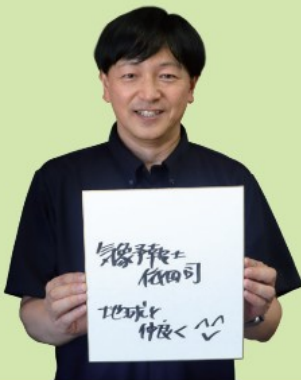 気象予報士
依田司
地球と
仲良く^^